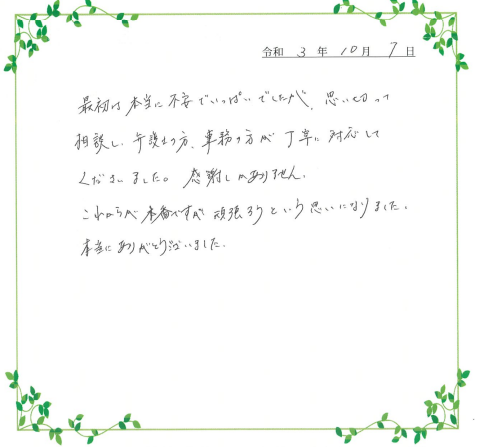 令和 3 年 10 月 7 日
最初は本当に不安でいっぱいでしたが、思い切って
相談し、弁護士の方、事務の方が丁寧に対応して
くださいました。感謝しかありません。
これからが本番ですが頑張ろうという思いになりました。
本当にありがとうございました。